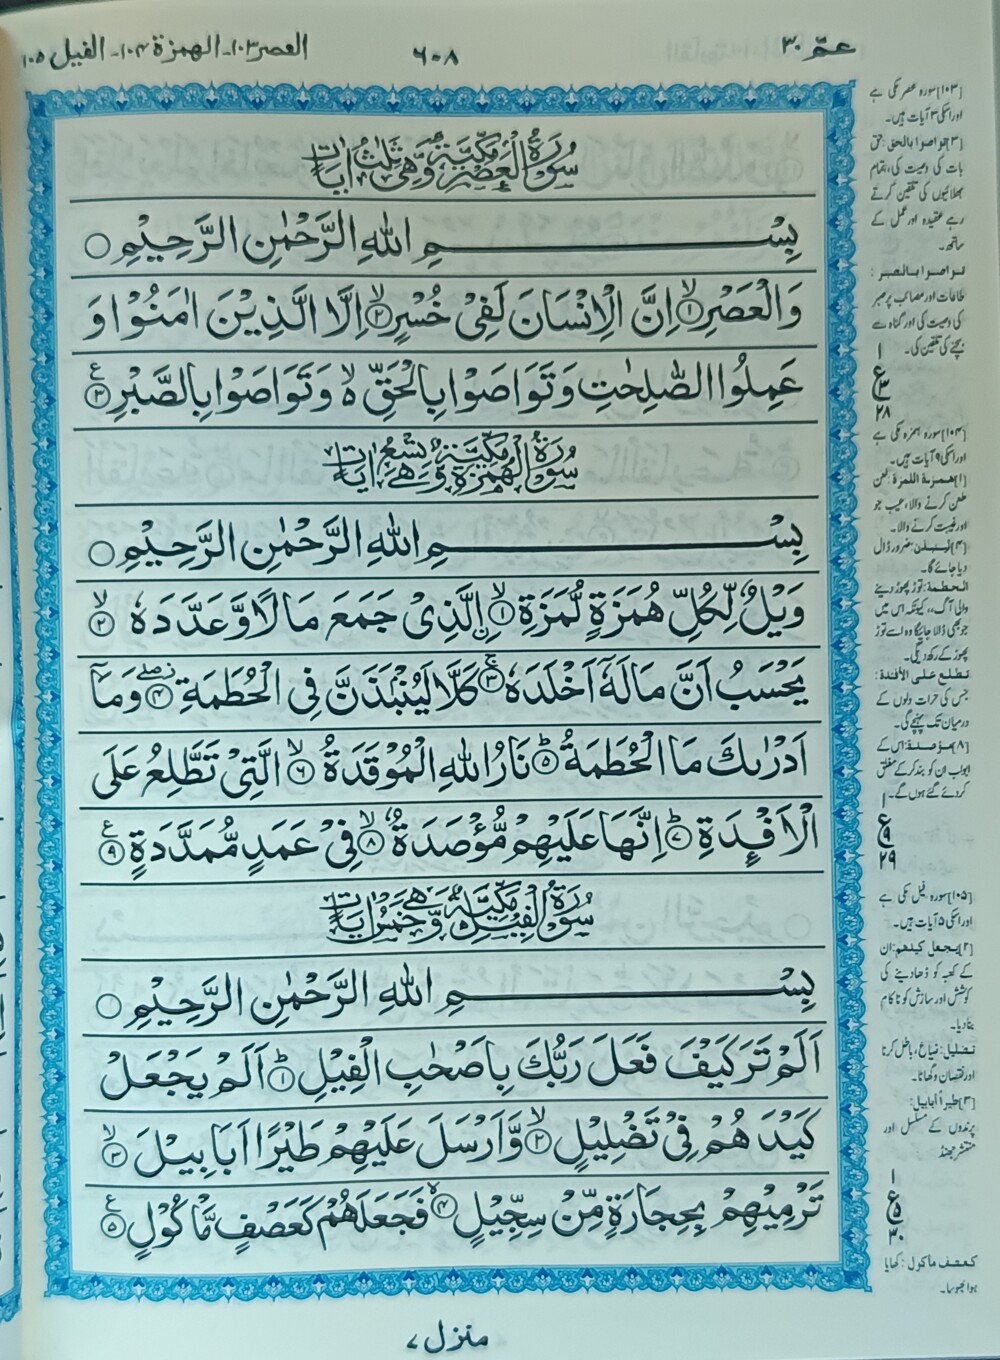 عمّ ۳۰
۶۰۸
العصر ۱۰۳۔ الهمزة ۱۰۴۔ الفيل ۱۰۵
سُوْرَةُ الْعَصْرِ مَكِّيَّةٌ وَّهِیَ ثَلٰثُ اٰيَاتٍ
بِسْمِ اللهِ الرَّحْمٰنِ الرَّحِيْمِ ○
وَالْعَصْرِ ۙ﴿۱﴾ اِنَّ الْاِنْسَانَ لَفِیْ خُسْرٍ ۙ﴿۲﴾ اِلَّا الَّذِيْنَ اٰمَنُوْا وَ
عَمِلُوا الصّٰلِحٰتِ وَتَوَاصَوْا بِالْحَقِّ ۙ وَتَوَاصَوْا بِالصَّبْرِ ﴿۳﴾ ع
سُوْرَةُ الْهُمَزَةِ مَكِّيَّةٌ وَّهِیَ تِسْعُ اٰيَاتٍ
بِسْمِ اللهِ الرَّحْمٰنِ الرَّحِيْمِ ○
وَيْلٌ لِّكُلِّ هُمَزَةٍ لُّمَزَةِ ۙ﴿۱﴾ اِۨلَّذِیْ جَمَعَ مَالًا وَّعَدَّدَهٗ ۙ﴿۲﴾
يَحْسَبُ اَنَّ مَالَهٗۤ اَخْلَدَهٗ ۚ﴿۳﴾ كَلَّا لَيُنْۢبَذَنَّ فِی الْحُطَمَةِ ۖ﴿۴﴾ وَمَاۤ
اَدْرٰىكَ مَا الْحُطَمَةُ ؕ﴿۵﴾ نَارُ اللهِ الْمُوْقَدَةُ ۙ﴿۶﴾ الَّتِیْ تَطَّلِعُ عَلَى
الْاَفْـِٕدَةِ ؕ﴿۷﴾ اِنَّهَا عَلَيْهِمْ مُّؤْصَدَةٌ ۙ﴿۸﴾ فِیْ عَمَدٍ مُّمَدَّدَةٍ ﴿۹﴾ ع
سُوْرَةُ الْفِيْلِ مَكِّيَّةٌ وَّهِیَ خَمْسُ اٰيَاتٍ
بِسْمِ اللهِ الرَّحْمٰنِ الرَّحِيْمِ ○
اَلَمْ تَرَ كَيْفَ فَعَلَ رَبُّكَ بِاَصْحٰبِ الْفِيْلِ ؕ﴿۱﴾ اَلَمْ يَجْعَلْ
كَيْدَهُمْ فِیْ تَضْلِيْلٍ ۙ﴿۲﴾ وَّاَرْسَلَ عَلَيْهِمْ طَيْرًا اَبَابِيْلَ ۙ﴿۳﴾
تَرْمِيْهِمْ بِحِجَارَةٍ مِّنْ سِجِّيْلٍ ۙ﴿۴﴾ فَجَعَلَهُمْ كَعَصْفٍ مَّاْكُوْلٍ ﴿۵﴾ ع
[۱۰۳] سورہ عصر مکی ہے
اور اسکی ۳ آیات ہیں۔
[۳] تواصوا بالحق: حق
بات کی وصیت کی، تمام
بھلائیوں کی تلقین کرتے
رہے عقیدہ اور عمل کے
ساتھ۔
تواصوا بالصبر:
طاعات اور مصائب پر صبر
کی وصیت کی اور گناہ سے
بچنے کی تلقین کی۔
۱
ع
۳
۲۸
[۱۰۴] سورہ ہمزہ مکی ہے
اور اسکی ۹ آیات ہیں۔
[۱] همزة اللمزة: طعن
طعن کرنے والا، عیب جو
اور غیبت کرنے والا۔
[۴] لینبذن: ضرور ڈال
دیا جائے گا۔
الحطمة: توڑ پھوڑ دینے
والی آگ، کیونکہ اس میں
جو بھی ڈالا جائیگا وہ اسے توڑ
پھوڑ کے رکھ دیگی۔
تطلع علی الأفئدة:
جس کی حرارت دلوں کے
درمیان تک پہنچے گی۔
[۸] مؤصدة: اس کے
ابواب ان کو بند کر کے مغلق
کر دئے گئے ہوں گے۔
۱
ع
۹
۲۹
[۱۰۵] سورہ فیل مکی ہے
اور اسکی ۵ آیات ہیں۔
[۲] یجعل کیدهم: ان
کے کعبہ کو ڈھا دینے کی
کوشش اور سازش کو ناکام
بنا دیا۔
تضلیل: ضیاع، باطل کرنا
اور نقصان و گھاٹا۔
[۳] طیرا أبابیل:
پرندوں کے مسلسل اور
منتشر جھنڈ
۱
ع
۵
۳۰
کعصف ماکول: کھایا
ہوا بھوسا۔
منزل ۷